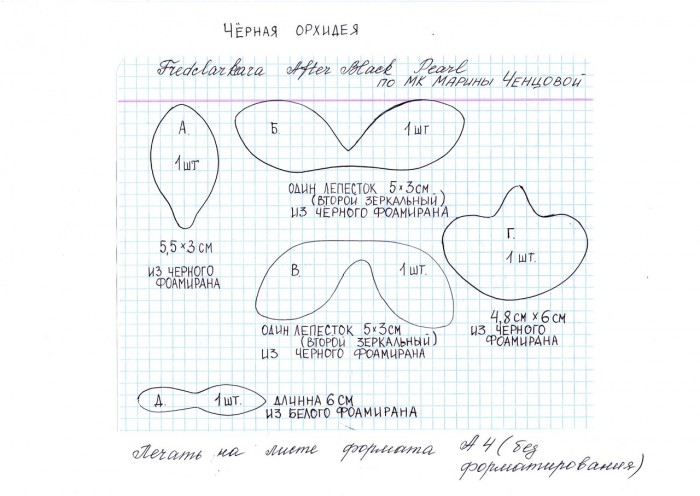 ЧЁРНАЯ ОРХИДЕЯ
Fredclarkara After Black Pearl
ПО МК МАРИНЫ ЧЕНЦОВОЙ
А.
1 шт
5,5 × 3 см
ИЗ ЧЕРНОГО
ФОАМИРАНА
Б.
1 шт
ОДИН ЛЕПЕСТОК 5×3см
(ВТОРОЙ ЗЕРКАЛЬНЫЙ)
ИЗ ЧЕРНОГО ФОАМИРАНА
В.
1 шт.
ОДИН ЛЕПЕСТОК 5×3см
(ВТОРОЙ ЗЕРКАЛЬНЫЙ)
ИЗ ЧЕРНОГО ФОАМИРАНА
Г.
1 шт.
4,8 см × 6 см
ИЗ ЧЁРНОГО
ФОАМИРАНА
Д.
1 шт.
ДЛИННА 6 СМ
ИЗ БЕЛОГО ФОАМИРАНА
Печать на листе формата А4 (без
форматирования)